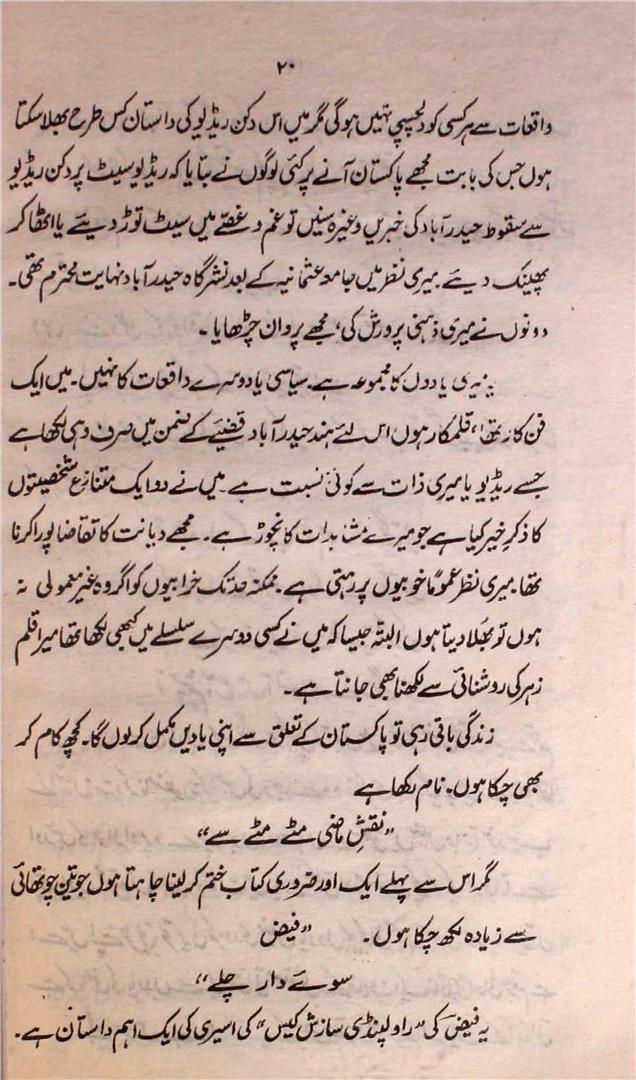 ۲۰
واقعات سے ہر کسی کو دلچسپی نہیں ہوگی مگر میں اس دکن ریڈیو کی داستان کس طرح بھلا سکتا
ہوں جس کی بابت مجھے پاکستان آنے پر کئی لوگوں نے بتایا کہ ریڈیو سیٹ پر دکن ریڈیو
سے سقوط حیدرآباد کی خبریں وغیرہ سنیں تو غم و غصّے میں سیٹ توڑ دیئے یا اٹھا کر
پھینک دیئے۔ میری نظر میں جامعہ عثمانیہ کے بعد نشرگاہ حیدرآباد نہایت محترم تھی۔
دونوں نے میری ذہنی پرورش کی، مجھے پروان چڑھایا۔
یہ میری یادوں کا مجموعہ ہے۔ سیاسی یا دوسرے واقعات کا نہیں۔ میں ایک
فن کار تھا، قلمکار ہوں اس لئے ہند حیدرآباد قضیئے کے ضمن میں صرف وہی لکھا ہے
جسے ریڈیو یا میری ذات سے کوئی نسبت ہے۔ میں نے دو ایک متنازع شخصیتوں
کا ذکرِ خیر کیا ہے جو میرے مشاہدات کا نچوڑ ہے۔ مجھے دیانت کا تقاضا پورا کرنا
تھا۔ میری نظر عموماً خوبیوں پر رہتی ہے۔ ممکنہ حد تک خرابیوں کو اگر وہ غیر معمولی نہ
ہوں تو بھلا دیتا ہوں البتہ جیسا کہ میں نے کسی دوسرے سلسلے میں کبھی لکھا تھا میرا قلم
زہر کی روشنائی سے لکھنا بھی جانتا ہے۔
زندگی باقی رہی تو پاکستان کے تعلق سے اپنی یادیں مکمل کر لوں گا۔ کچھ کام کر
بھی چکا ہوں۔ نام رکھا ہے
”نقشِ ماضی مٹے مٹے سے“
مگر اس سے پہلے ایک اور ضروری کتاب ختم کر لینا چاہتا ہوں جو تین چوتھائی
سے زیادہ لکھ چکا ہوں۔ ”فیض
سوئے دار چلے“
یہ فیض کی ”راولپنڈی سازش کیس“ کی اسیری کی ایک اہم داستان ہے۔